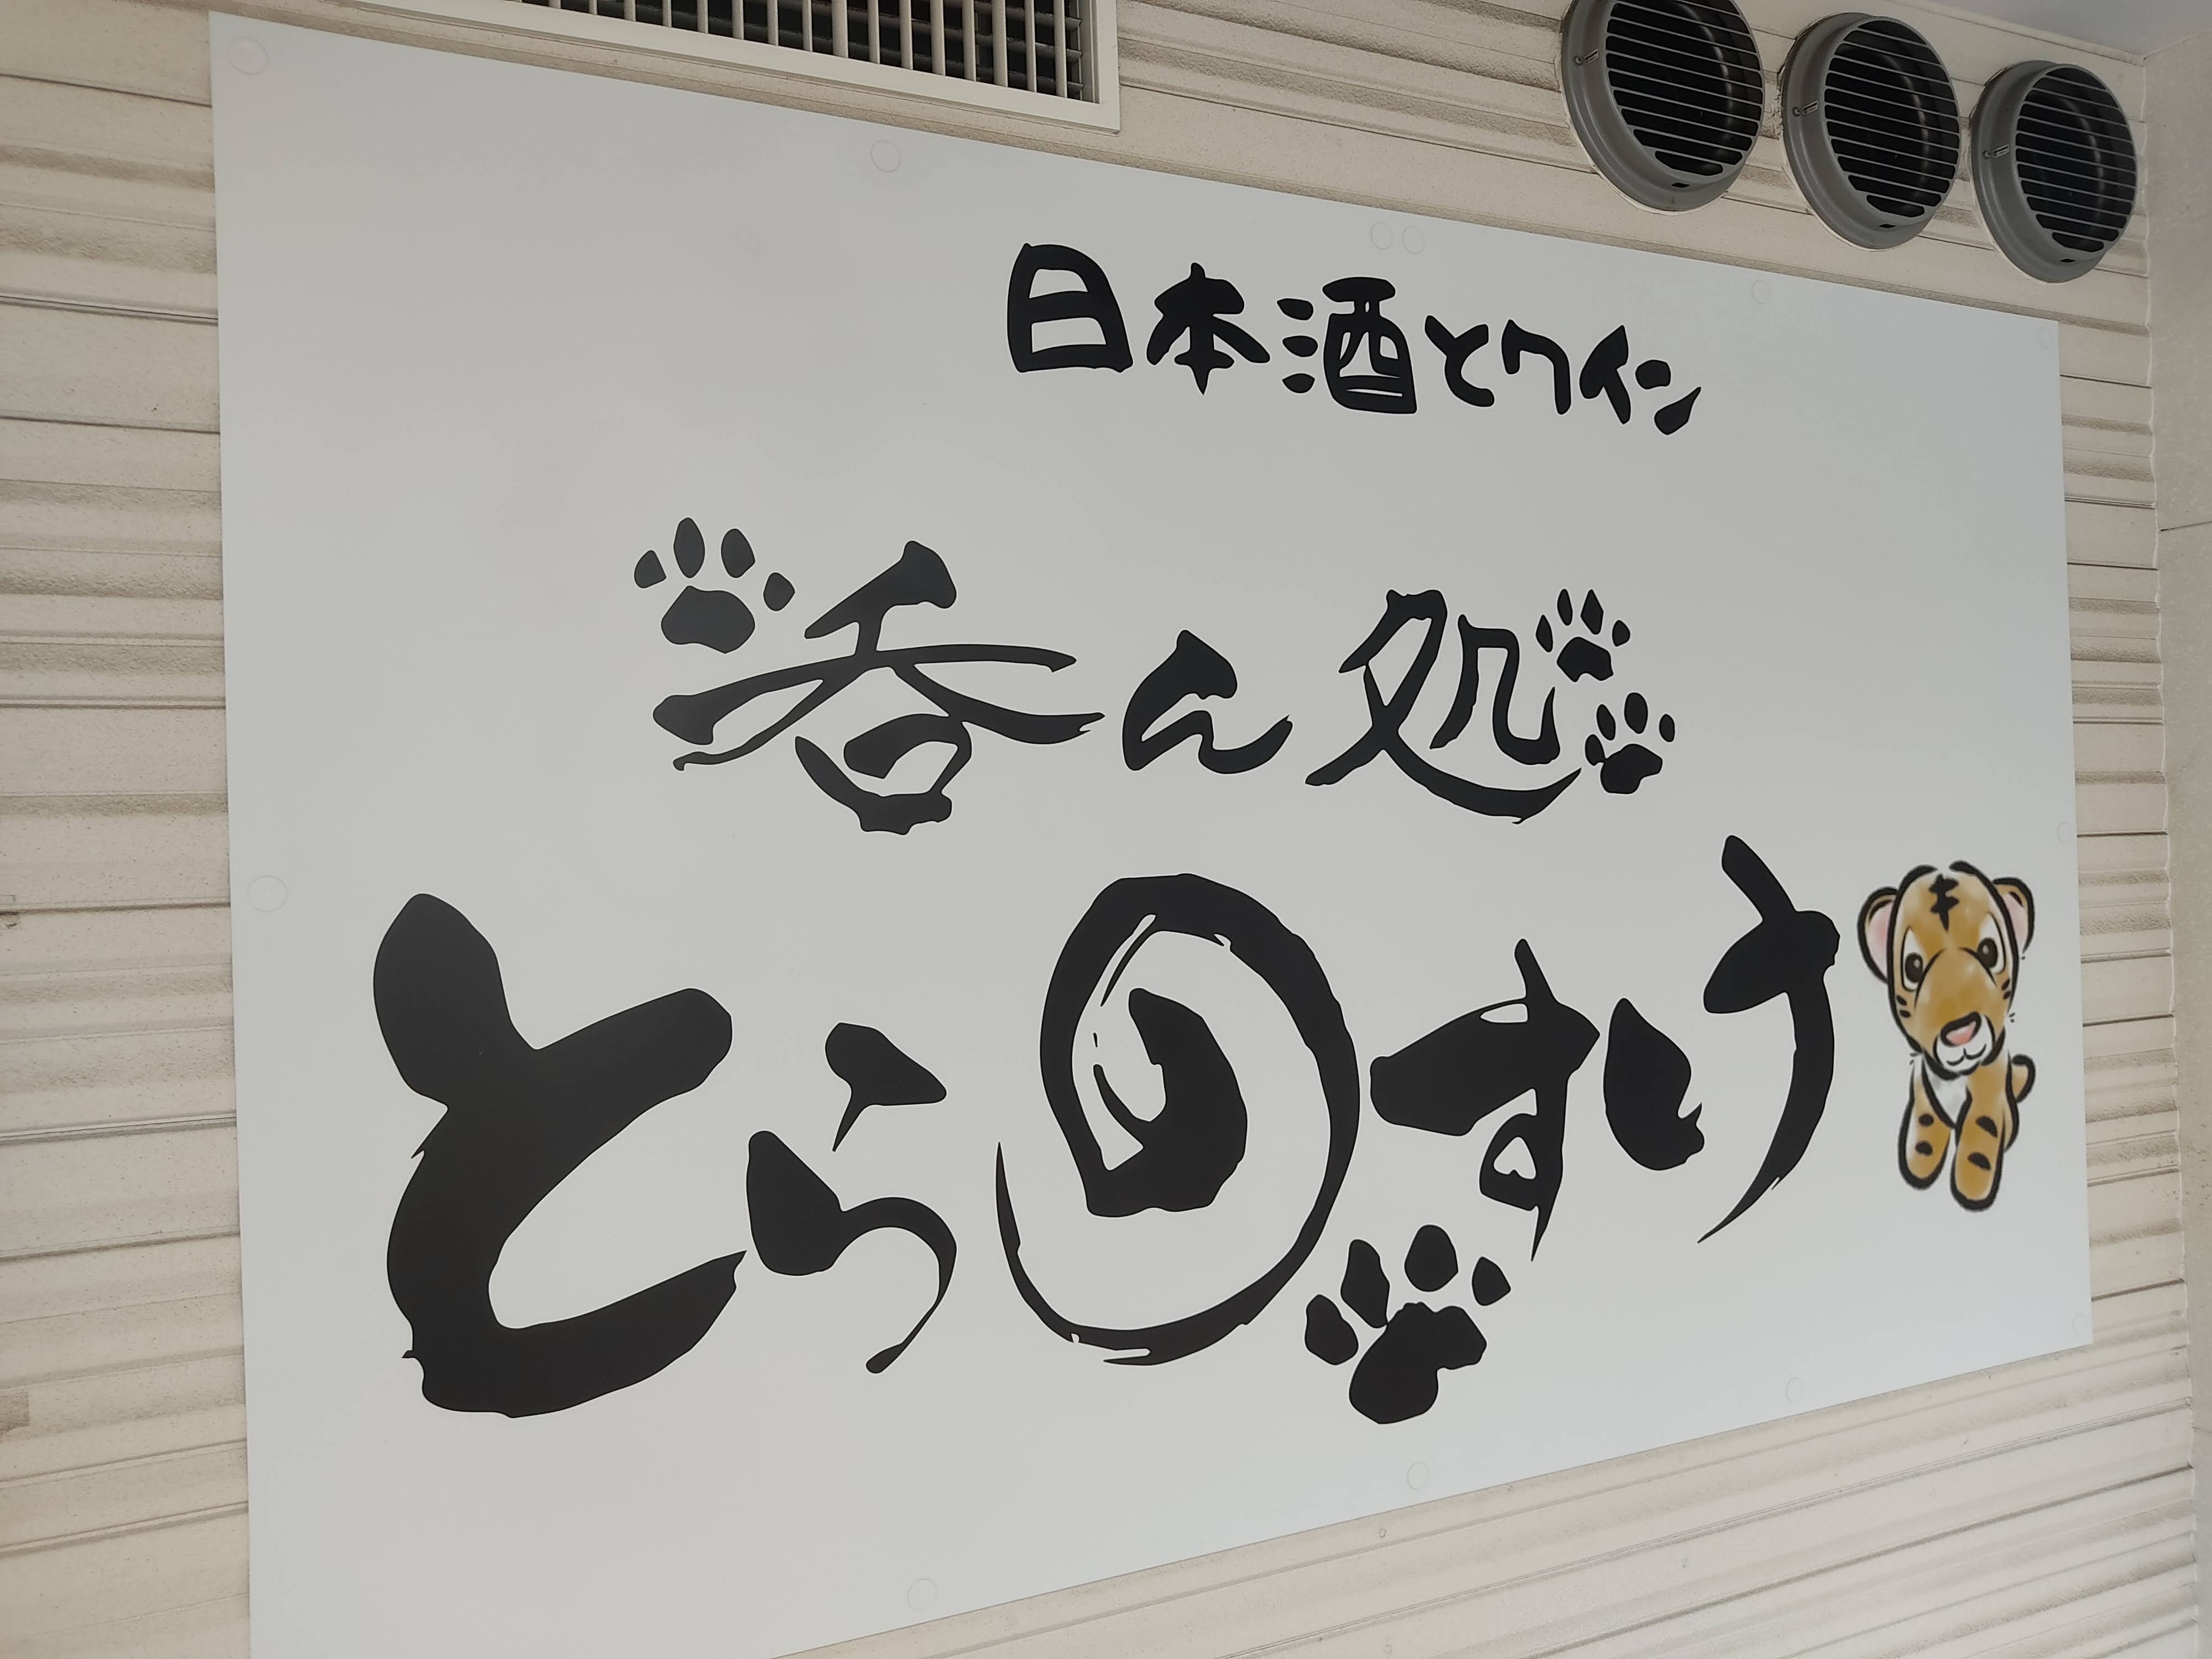 日本酒とワイン
呑ん処
とら回すけ